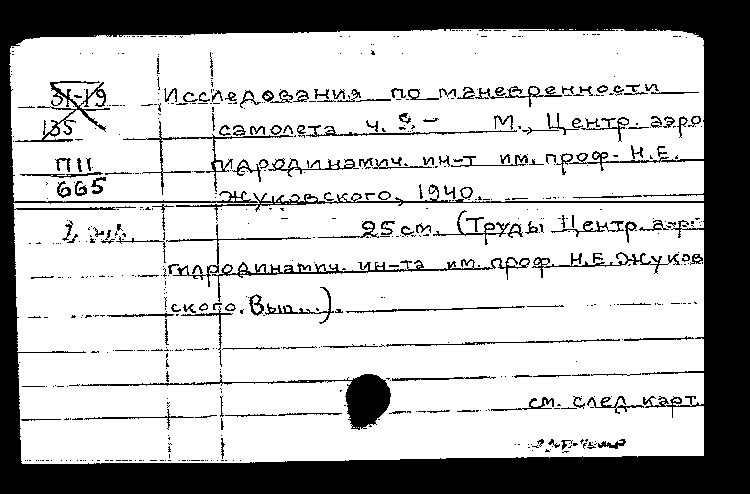 31-19
135
П11
665
Исследования по маневренности
самолета ч. М., Центр. аэро
гидродинамич. ин-т им. проф. Н.Е.
Жуковского, 1940.
25 см. (Труды Центр. аэро
гидродинамич. ин-та им. проф. Н.Е. Жуков
ского. Вып...).
см. след. карт.